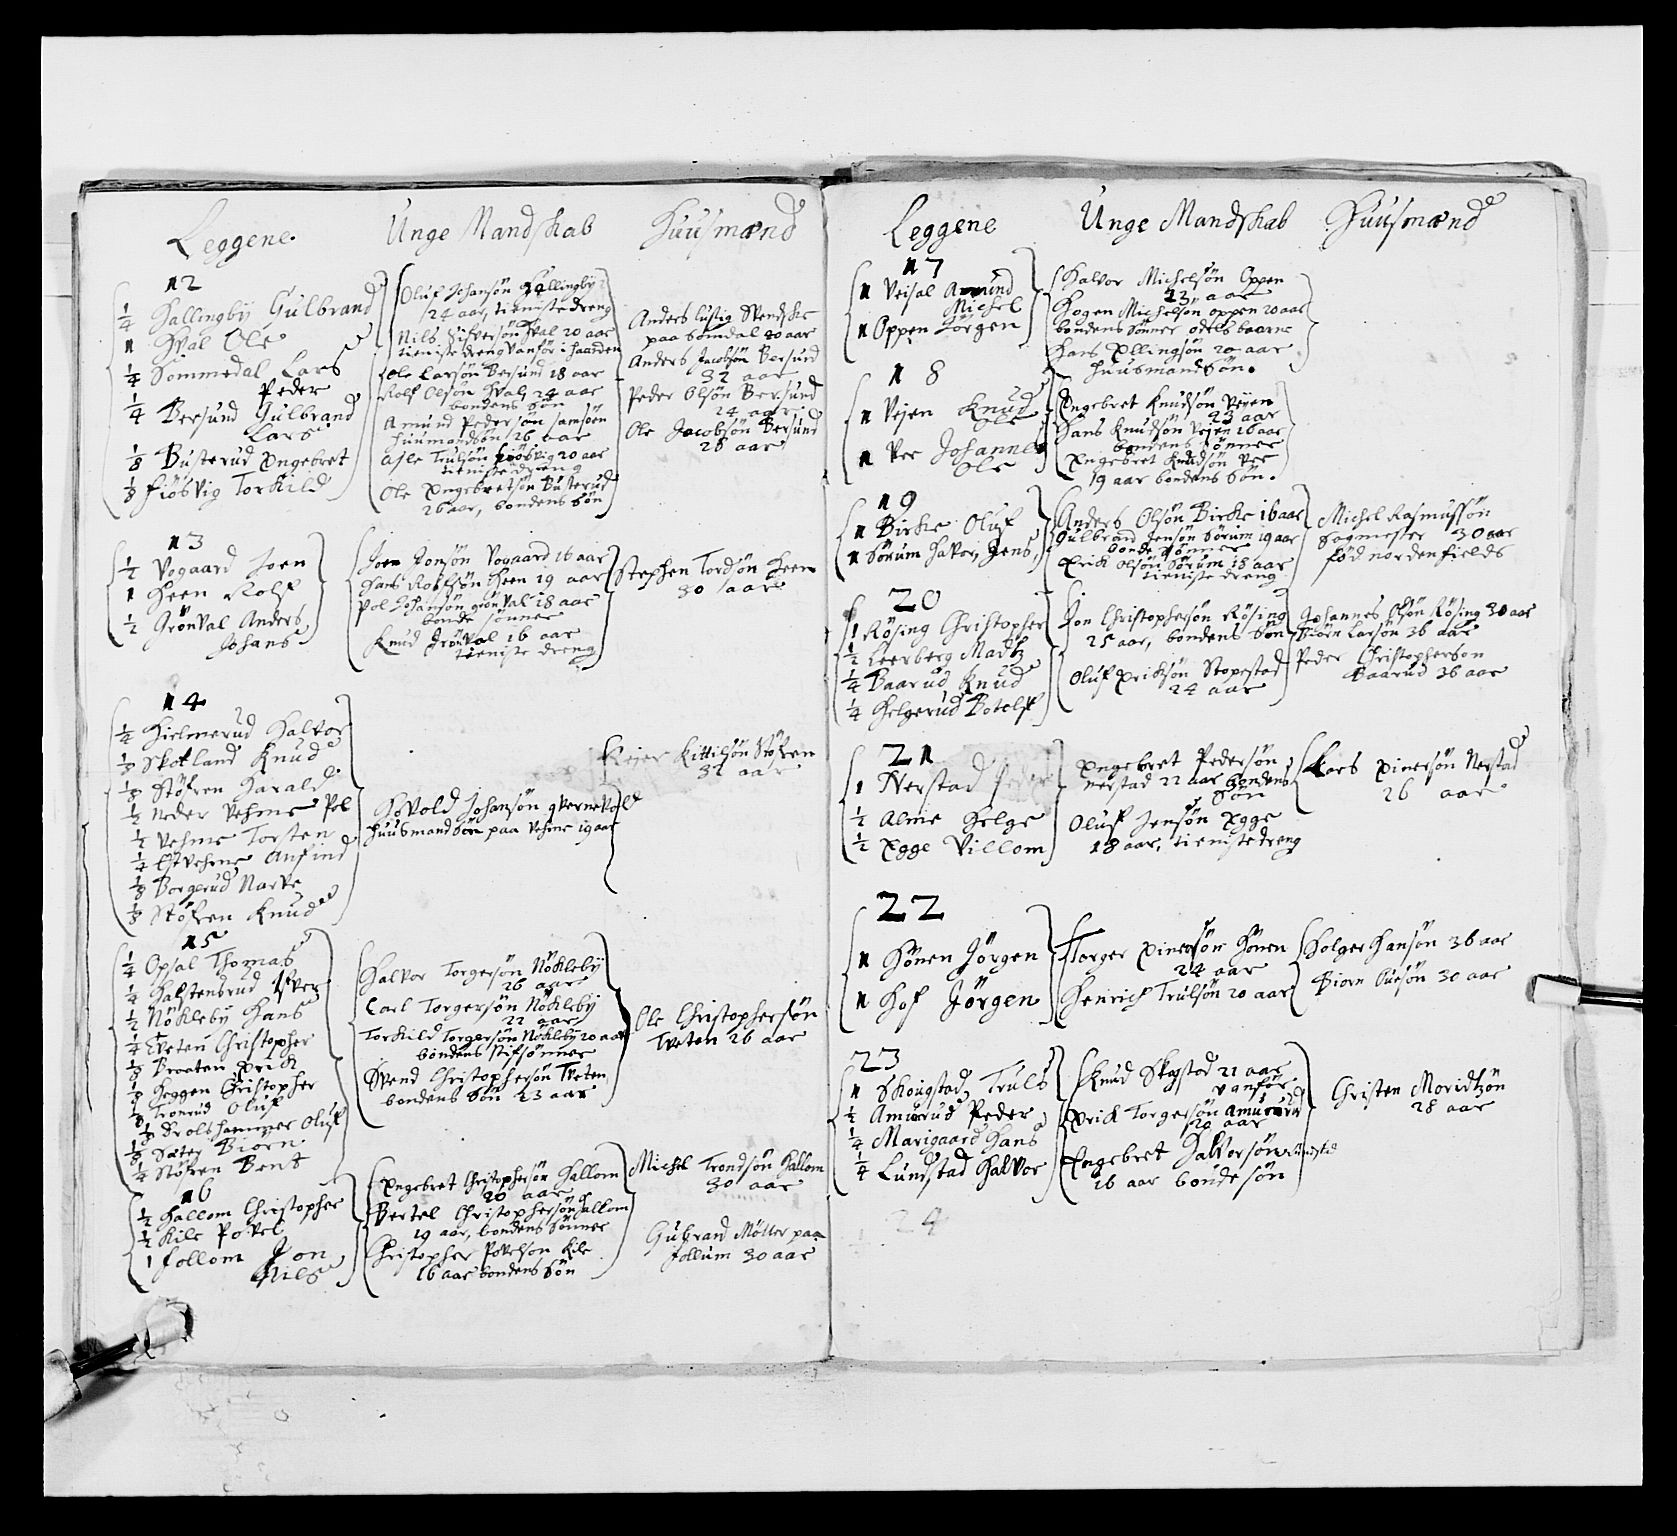 Leggene. Unge Mandskab Huusmænd
12
1/4 Hallingby Gulbrand
1 Hval Ole
1/4 Sommedal Lars
Peder
1/4 Bersund Gulbrand
Lars
1/8 Busterud Engebret
1/8 Fiösvig Torkild
Oluf Johansön Hallingby
24 aar, tieniste dreng
Nils Sifversön Hval 20 aar
tieniste dreng vanför i haanden
Ole Larsön Bersund 18 aar
Rolf Olsön Hval 24 aar
bondens sön
Amund Pedersön Samsöen
huusmandsön 26 aar
Asle Trulsön fiösvig 20 aar
tieniste dreng
Ole Engebretsön Busterud
26 aar, bondens sön
Anders lustig Svendske
paa Somdal 30 aar
Anders Jacobsön Bersund
32 aar
Peder Olsön Bersund
24 aar
Ole Jacobsön Bersund
28 aar
13
1/2 Vogaard Joen
1 Heen Rolf
1/2 Grönval Anders
Johans
Joen Jonsön Vogaard 16 aar
Hans Rolfsön Heen 19 aar
Pol Johansön grönval 18 aar
bonde sönner
Knud Grönval 16 aar
tieniste dreng
Stephen Tordsön Heen
30 aar
14
1/4 Hielmerud Halvor
1/8 Skotland Knud
1/8 Stöfren Harald
1/2 Neder Vehme Pol
1/2 Vehme Torsten
1/4 Østvehme Anfind
1/8 Borgerud Narve
1/8 Stöfren Knud
Hovold Johansön qvernevold
huusmandsön paa Vehme 19 aar
Reier Kittilsön Stöfren
32 aar
15
1/4 Opsal Thomas
1/4 Halstensrud Ifver
1/2 Nökleby Hans
1/4 Tveten Christopher
1/8 Braaten Erick
1/8 Heggen Christopher
1/8 Tronrud Oluf
1/8 Drolshammer Oluf
1/8 Sæter Biörn
1/4 Stöfren Bent
Halvor Torgersön Nökleby
26 aar
Carl Torgersön Nökleby
22 aar
Torkild Torgersön Nökleby 20 aar
bondens stifsönner
Svend Christophersön Tveten
bondens sön 23 aar
Ole Christophersön
Tveten 26 aar
16
1/2 Hallom Christopher
1/2 Kile Povel
1 follom Jon
Nils
Engebret Christophersön Hallom
20 aar
Bertel Christophersön Hallom
19 aar, bondens sönner
Christopher Povelsön Kile
16 aar bondens sön
Michel Trondsön Hallom
30 aar
Gulbrand Möller paa
follum 30 aar
Leggene Unge Mandskab Huusmænd
17
1 Veisal Amund
Michel
1 Oppen Jörgen
Halvor Michelsön Oppen
23 aar
Hogen Michelsön oppen 20 aar
bondens sönner odels baarne
Hans Ellingsön 20 aar
huusmandsön.
18
1 Vejen Knud
Ole
1 Vee Johannes
Ole
Engebret Knudsön Vejen
23 aar
Hans Knudsön Vejen 16 aar
bondens sönner
Engebret Knudsön Vee
19 aar bondens sön.
19
1 Birke Oluf
1 Sörum Hafvor, Jens
Anders Olsön Birke 16 aar
Gulbrand Jensön Sörum 19 aar
bonde sönner
Erick Olsön Sörum 18 aar
tieniste dreng
Michel Rasmussön
Sagmester 30 aar
föd nordenfields
20
1 Rösing Christopher
1/2 Leerberg Madtz
1/4 Baarud Knud
1/4 Helgerud Botolf
Jon Christophersön Rösing
25 aar, bondens sön
Oluf Ericksön Stopestad
24 aar
Johannes Olsön Rösing 30 aar
Biörn Larsön 36 aar
Peder Christopherson
Baarud 36 aar
21
1 Nerstad Peder
1/2 Alme Helge
1/2 Egge Villom
Engebret Pedersön
Nerstad 22 aar bondens
sön
Oluf Jensön Egge
18 aar, tieniste dreng
Lars Einersön Nerstad
26 aar
22
1 Hönen Jörgen
1 Hof Jörgen
Torger Einersön Hönen
24 aar
Henrich Trulsön 20 aar
Holger Hansön 36 aar
Biorn Ouesön 30 aar
23
1 Skougstad Truls
1/2 Amurud Peder
1/4 Marigaard Hans
1/4 Lundstad Halvor
Knud Skogstad 21 aar
vanför
Erick Torgersön Amurud
20 aar
Engebret Halvorsön Lundstad
16 aar bonde sön
Christen Moridtzön
28 aar
24